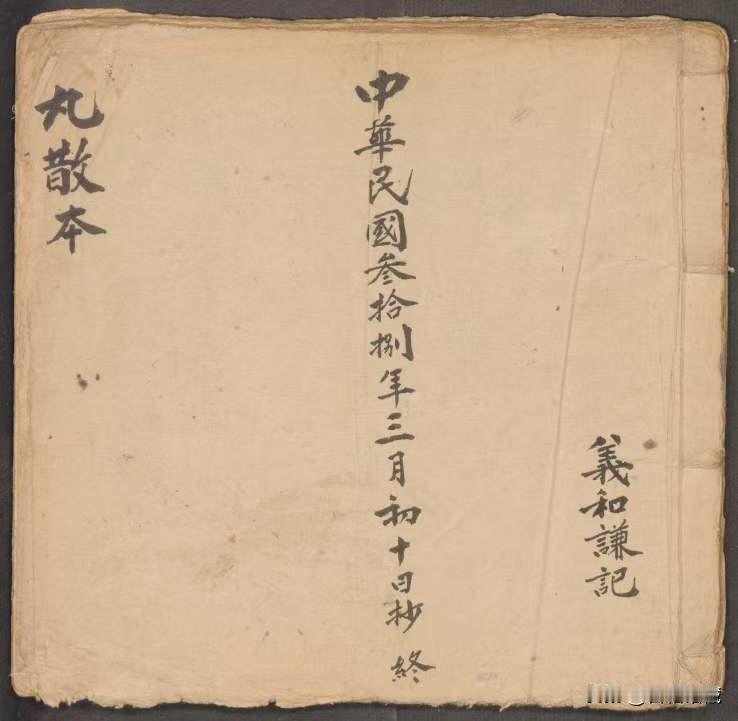 義和謙記
中華民國叁拾捌年三月初十日抄終
丸散本